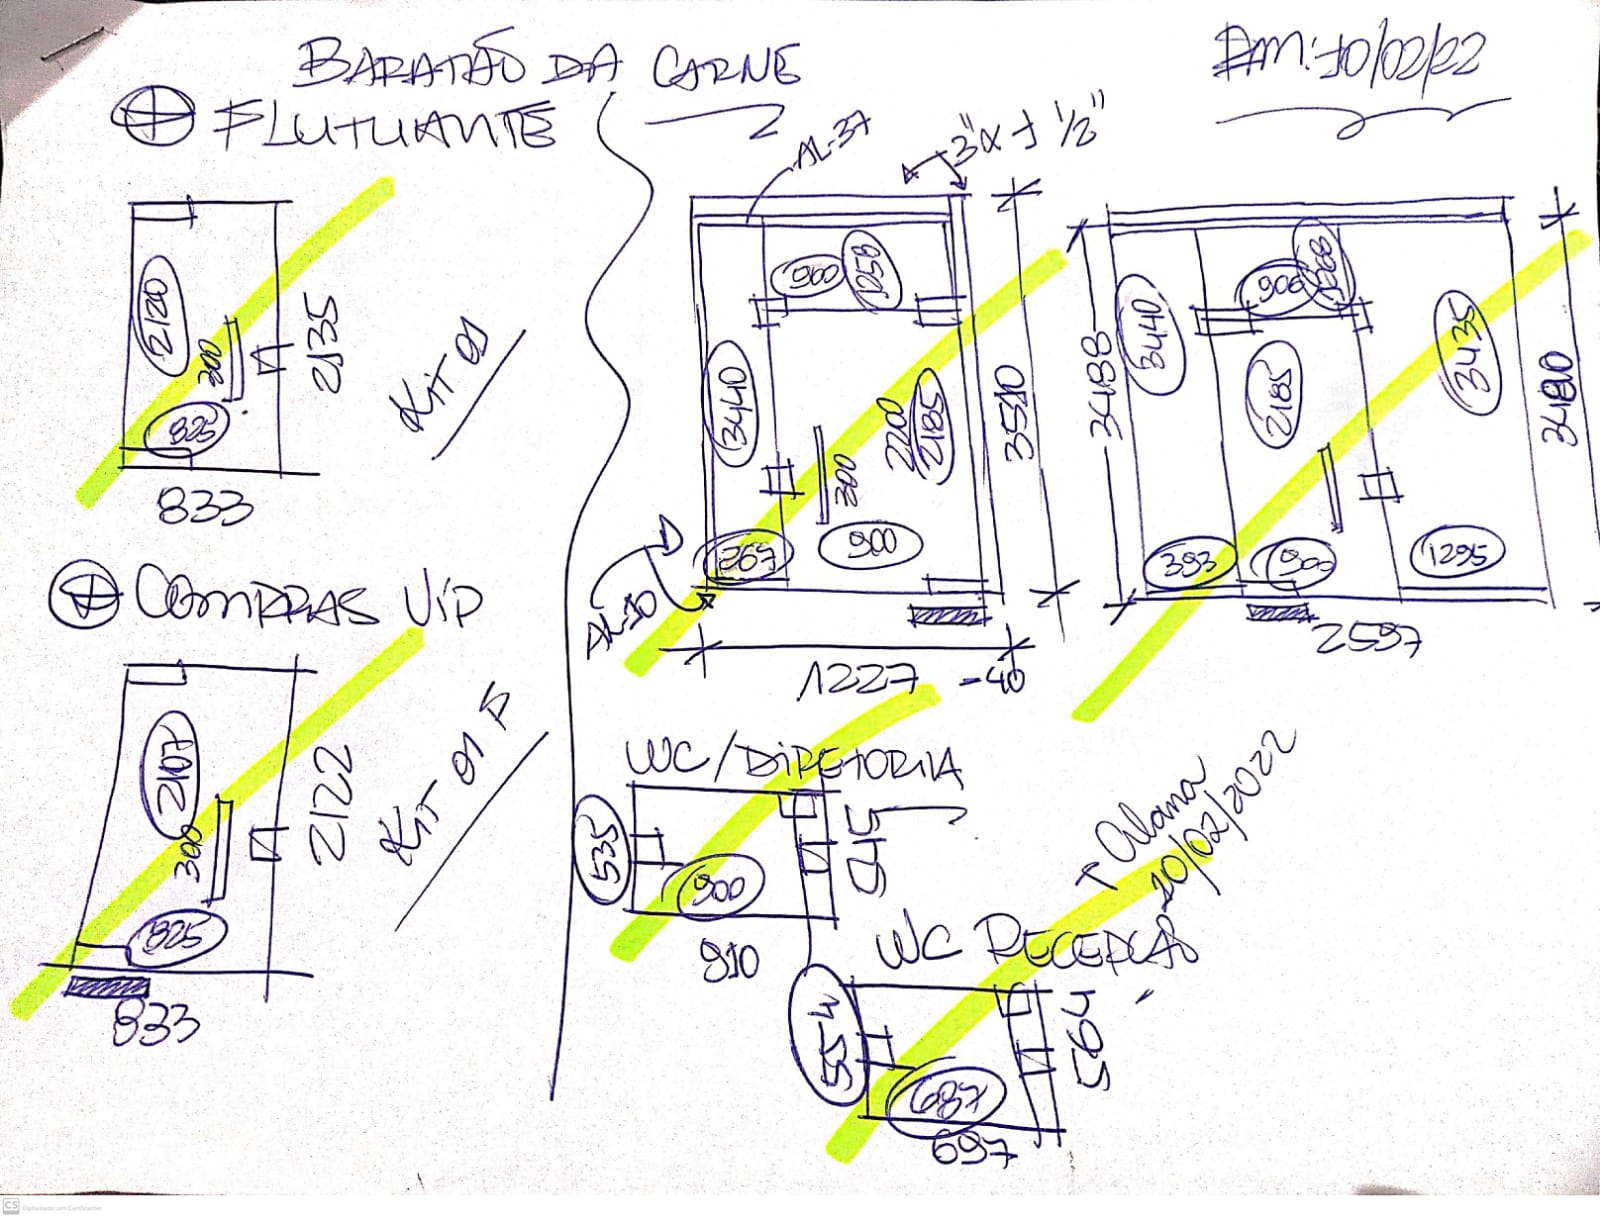 BARATÃO DA CARNE
EM: 10/02/22
FLUTUANTE
2120
300
825
2135
833
KIT 01
COMPRAS VIP
2107
300
825
2122
833
KIT 01 P
AL-37
3" x 1 1/2"
900
1258
3440
2200
2185
300
267
900
3510
AL-10
1227 -40
3488
3440
900
1268
2185
3435
3480
393
900
1295
2597
WC/DIRETORIA
535
900
545
910
Alana
10/02/2022
WC RECEPCAO
554
687
564
697
CS Digitalizado com CamScanner